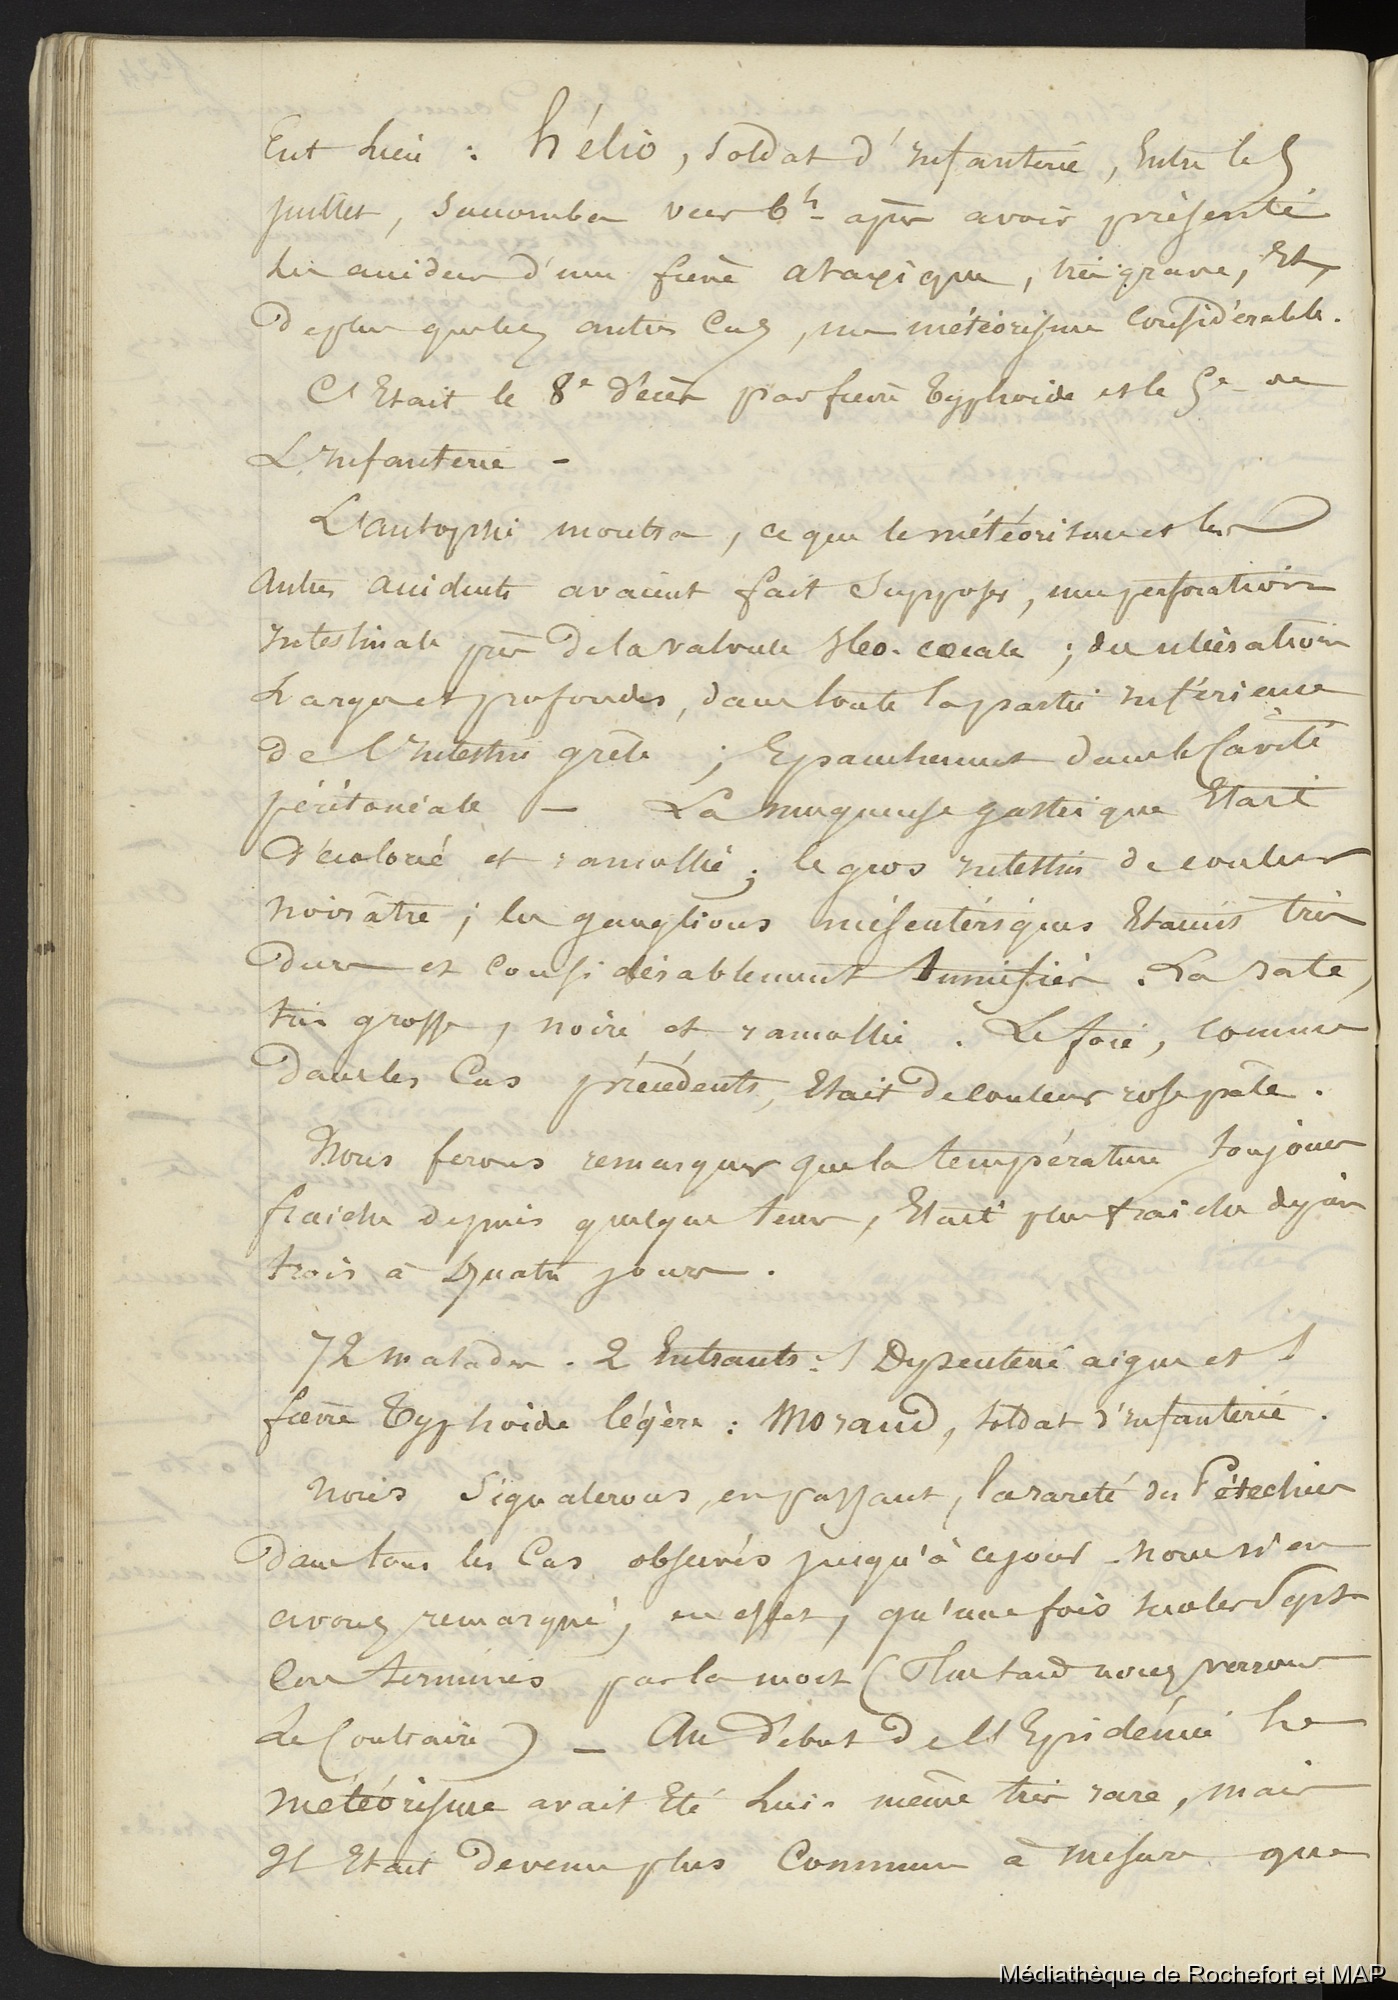 Eut lieu : hélio, soldat d'infanterie, Entré le 5
juillet, succomba vers 6h après avoir présenté
les accidens d'une fièvre ataxique, très grave, Et,
De plus quelques autres Cas, un météorisme Considérable.
C'Etait le 8e décès par fièvre typhoide et le 5e de
L'infanterie -
L'autopsie montra, ce que le météorisme et les
autres accidents avaient fait Supposer, une perforation
intestinale près De la valvule iléo-cœcale ; des ulcérations
Larges et profondes, dans toute la partie inférieure
de l'intestin grêle ; Epanchement dans la Cavité
péritonéale - La muqueuse gastrique Etait
décolorée et ramollie ; le gros intestin de couleur
noirâtre ; les ganglions mésentériques Etaient très
Durs et Considérablement tumifiés. La rate,
très grosse, noire et ramollie. Le foie, comme
Dans les Cas précédents, Etait De couleur rose pâle.
Nous ferons remarquer que la température toujours
fraiche depuis quelque tems, Etait plus fraiche depuis
trois à Quatre jours.
72 malades. 2 Entrants : 1 Dysenterie aigue et 1
fièvre Typhoïde légère : Moraud, soldat d'infanterie.
Nous Signalerons, en passant, la rareté des Pétechies
Dans tous les Cas observés jusqu'à ce jour - nous n'en
avons remarqué, en effet, qu'une fois sur les Sept
Cas terminés par la mort (Plus tard nous verrons
Le Contraire) - Au Début De l'Epidémie le
météorisme avait Eté lui-même très rare, mais
Il Etait Devenu plus Commun à mesure que
Médiathèque de Rochefort et MAP